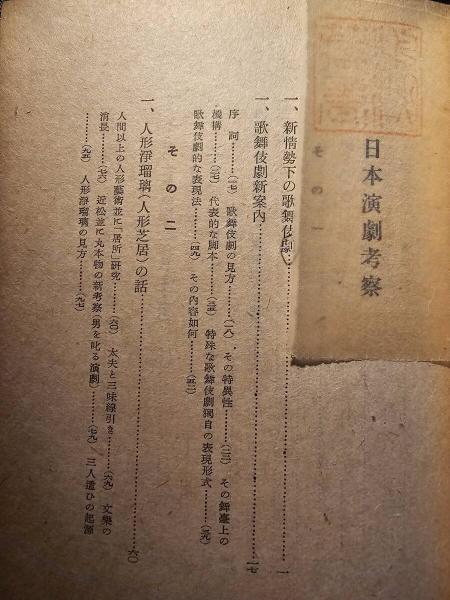 日本演劇考察
その一
一、新情勢下の歌舞伎劇……一
一、歌舞伎劇新案内……一七
序詞……(一七) 歌舞伎劇の見方……(一八) その特異性……(二三) その舞臺上の
機構……(二七) 代表的な脚本……(三五) 特殊な歌舞伎劇獨自の表現形式……(三九)
歌舞伎劇的な表現法……(四九) その内容如何……(五二)
その二
一、人形淨瑠璃(人形芝居)の話……六〇
人間以上の人形藝術並に「居所」研究……(六〇) 太夫と三味線引き……(六九) 文樂の
消長……(七六) 近松並に丸本物の新考察(男を叱る演劇)……(七九) 三人遣ひの起源
……(九五) 人形淨瑠璃の見方……(九七)